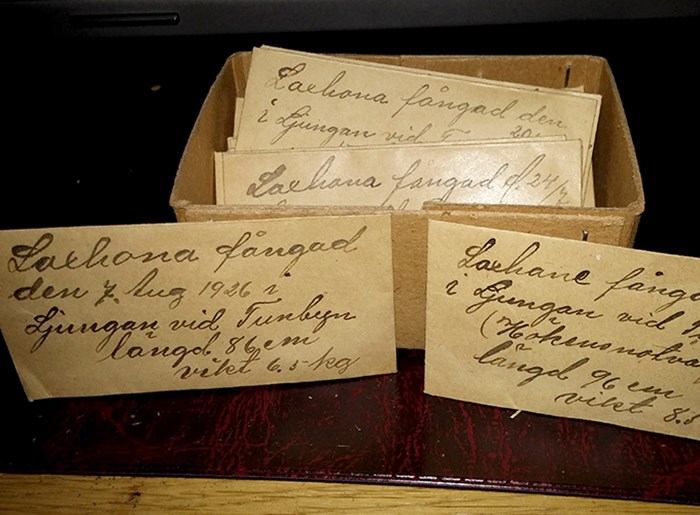 Laxhona fångad den
i Ljungan vid
Laxhona fångad d 24/7
Laxhona fångad
den 7 Aug 1926 i
Ljungan vid Tunbyn
längd 86 cm
vikt 6.5 kg
Laxhane fång
i Ljungan vid
längd 96 cm
vikt 8.5